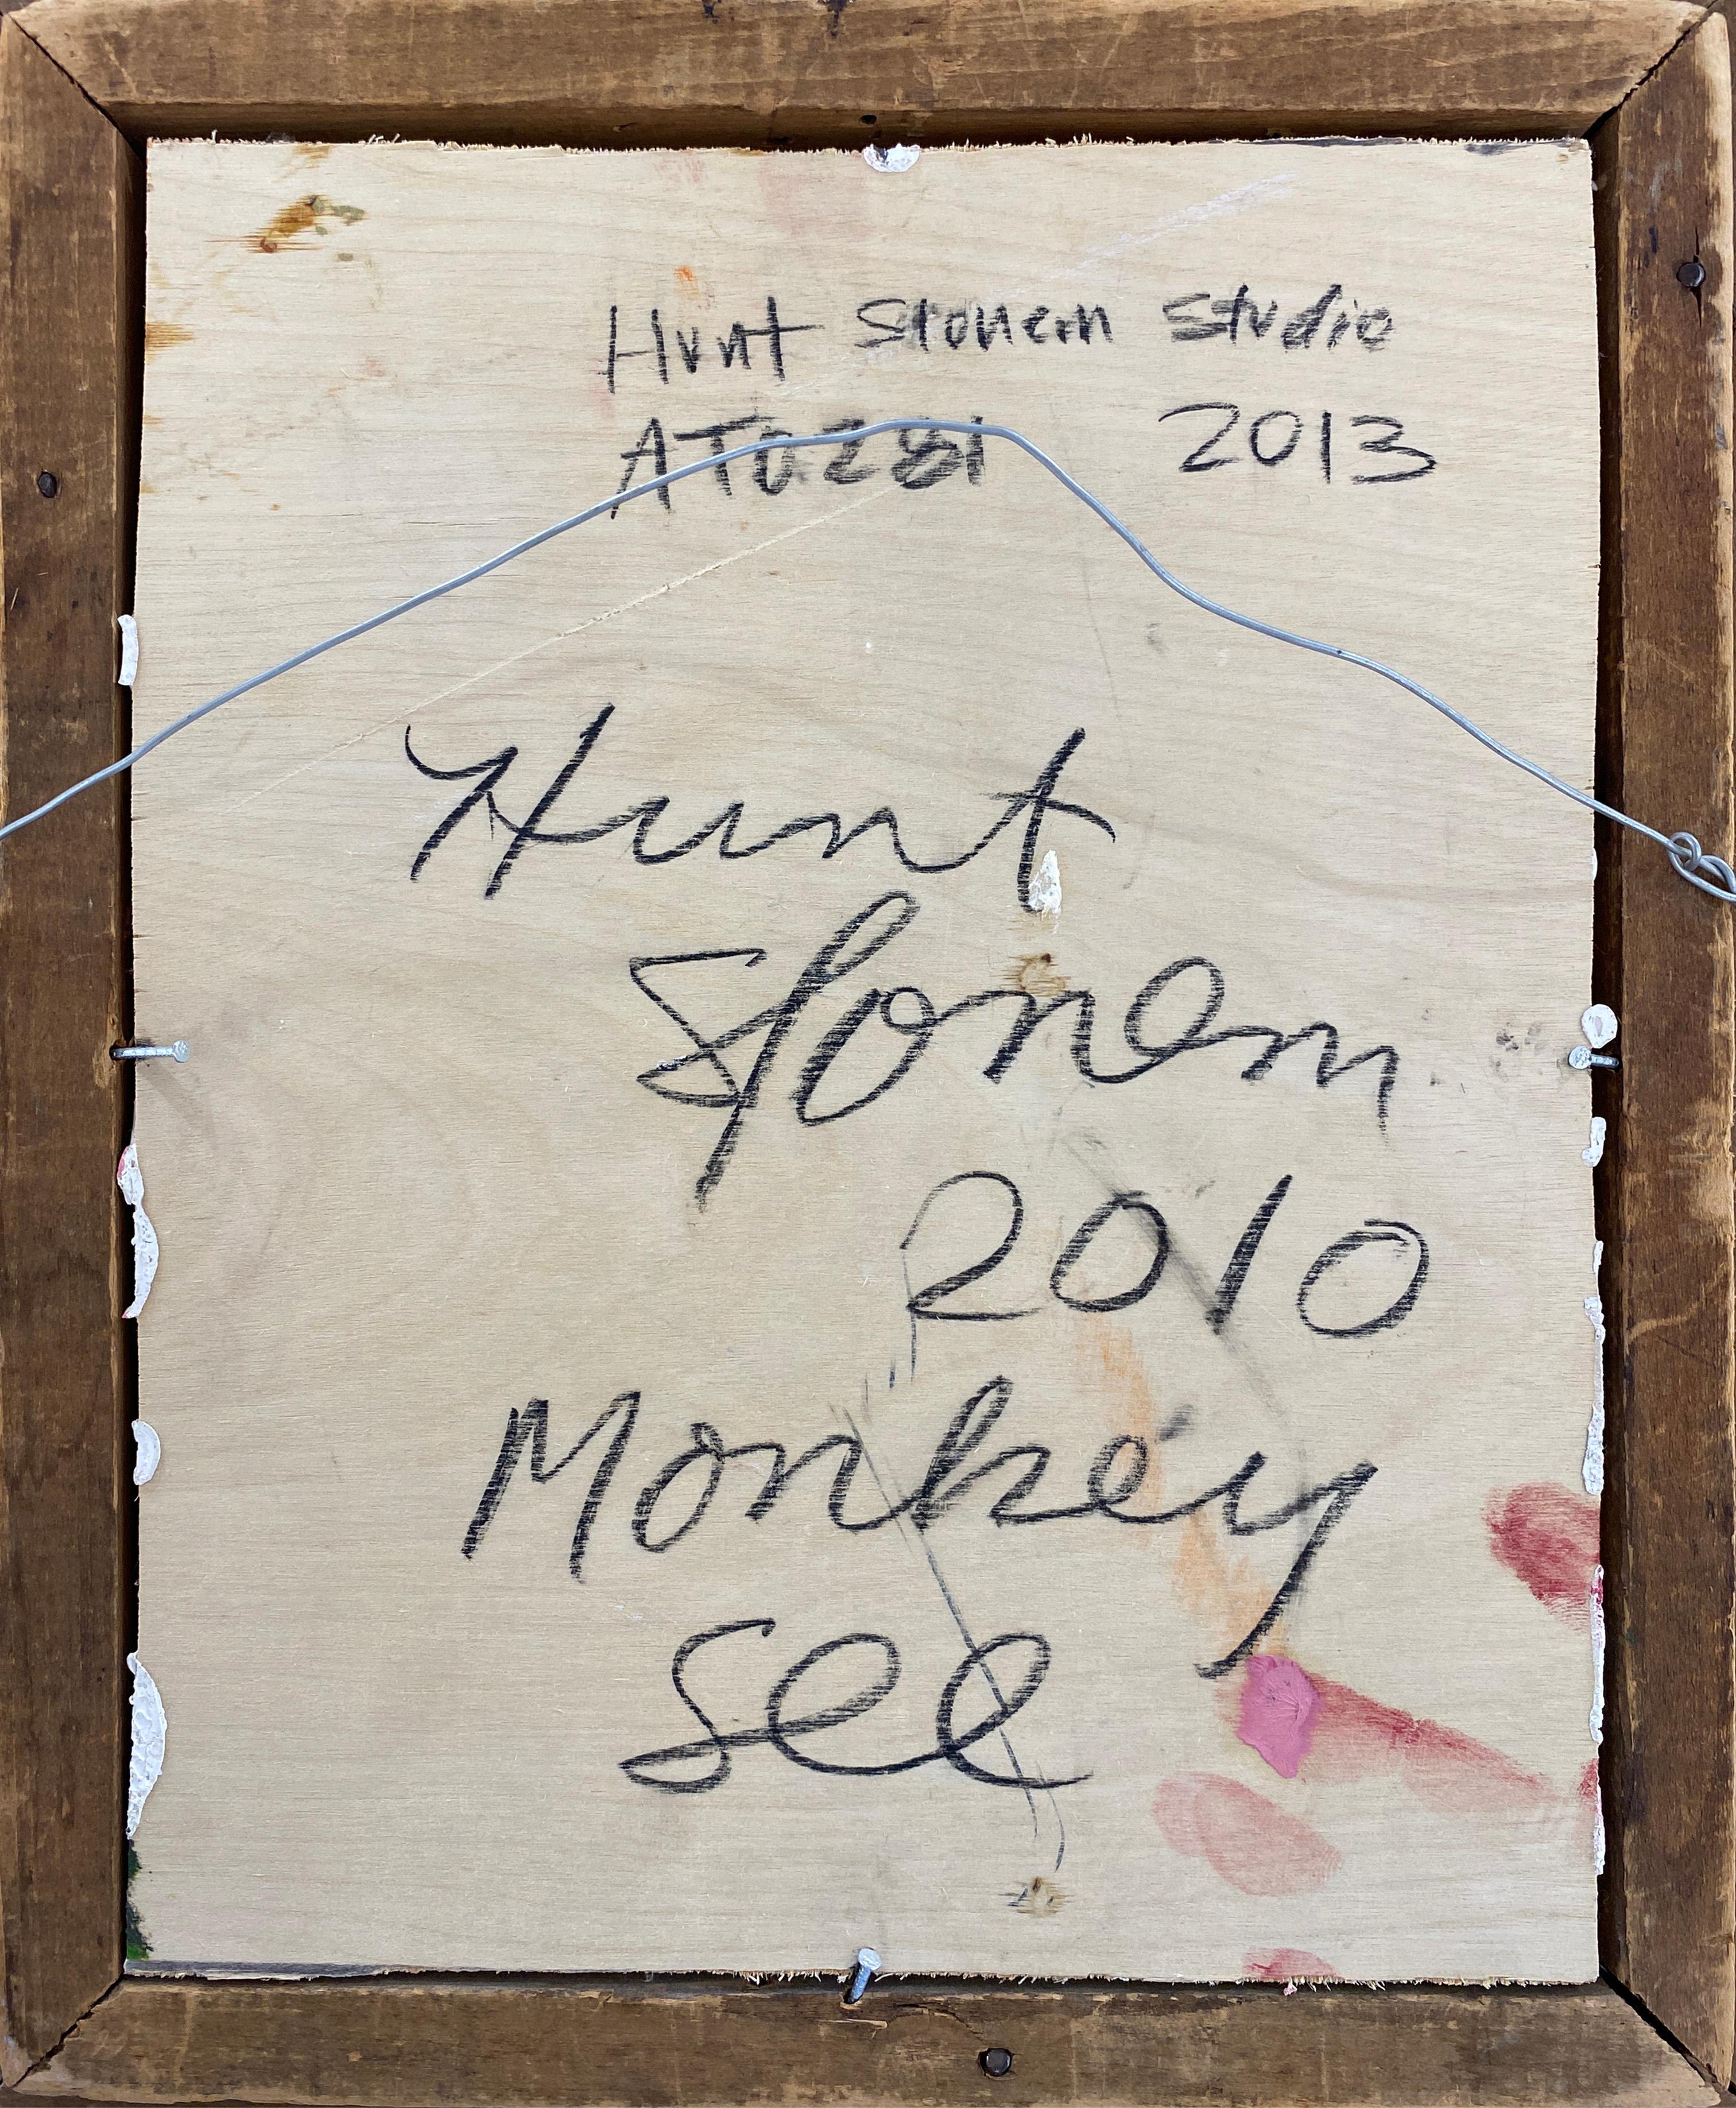 Hunt Slonem Studio
2013
Hunt
Slonem
2010
Monkey
See